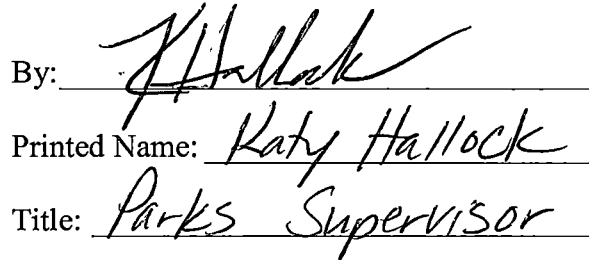 By: KHallock
Printed Name: Katy Hallock
Title: Parks Supervisor